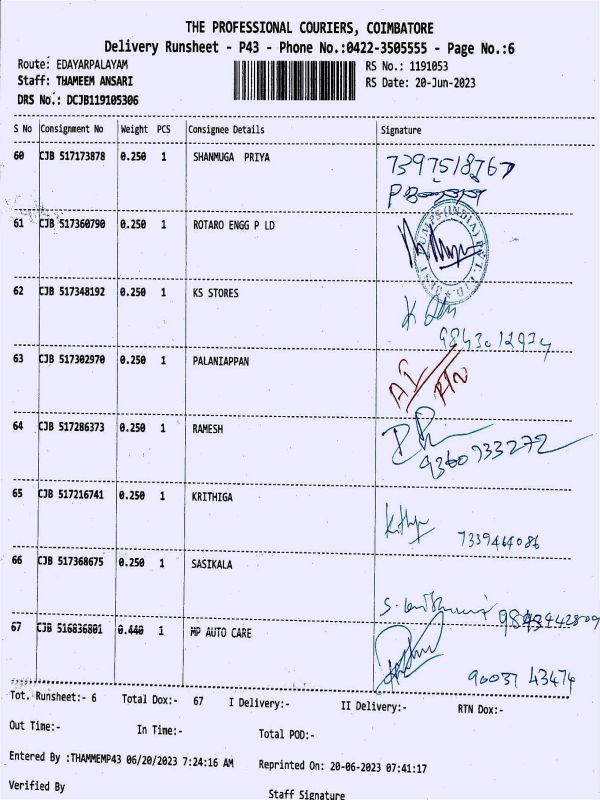 THE PROFESSIONAL COURIERS, COIMBATORE
Delivery Runsheet - P43 - Phone No.:0422-3505555 - Page No.:6
Route: EDAYARPALAYAM
Staff: THAMEEM ANSARI
DRS No.: DCJB119105306
RS No.: 1191053
RS Date: 20-Jun-2023
S No Consignment No Weight PCS Consignee Details Signature
60 CJB 517173878 0.250 1 SHANMUGA PRIYA 7397518767
61 CJB 517360790 0.250 1 ROTARO ENGG P LD
62 CJB 517348192 0.250 1 KS STORES
63 CJB 517302970 0.250 1 PALANIAPPAN
64 CJB 517286373 0.250 1 RAMESH
9360733272
65 CJB 517216741 0.250 1 KRITHIGA
7339464086
66 CJB 517368675 0.250 1 SASIKALA
67 CJB 516836801 0.440 1 MP AUTO CARE
90037 43474
Tot. Runsheet:- 6 Total Dox:- 67 I Delivery:- II Delivery:- RTN Dox:-
Out Time:- In Time:- Total POD:-
Entered By :THAMMEMP43 06/20/2023 7:24:16 AM Reprinted On: 20-06-2023 07:41:17
Verified By Staff Signature